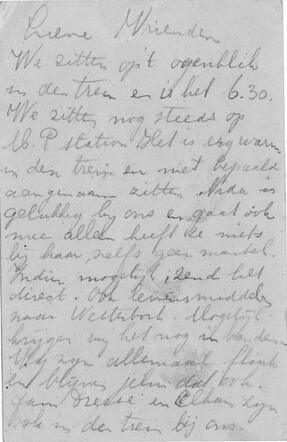 Lieve Vrienden
We zitten op't ogenblik
in den trein en is het 6.30.
We zitten nog steeds op
M. P station Het is erg warm
in den trein en niet bepaald
aangenaam zitten. Nida is
gelukkig bij ons en gaat ook
mee alleen heeft ze niets
bij haar, zelfs geen mantel.
Indien mogelijk zend het
direct. Ook levensmiddelen
naar Westerbork. Mogelijk
krijgen wij het nog in handen
Wij zijn allemaal flink
en blijven jelui dat ook.
Fam en Claar zijn
ook in den trein bij ons.